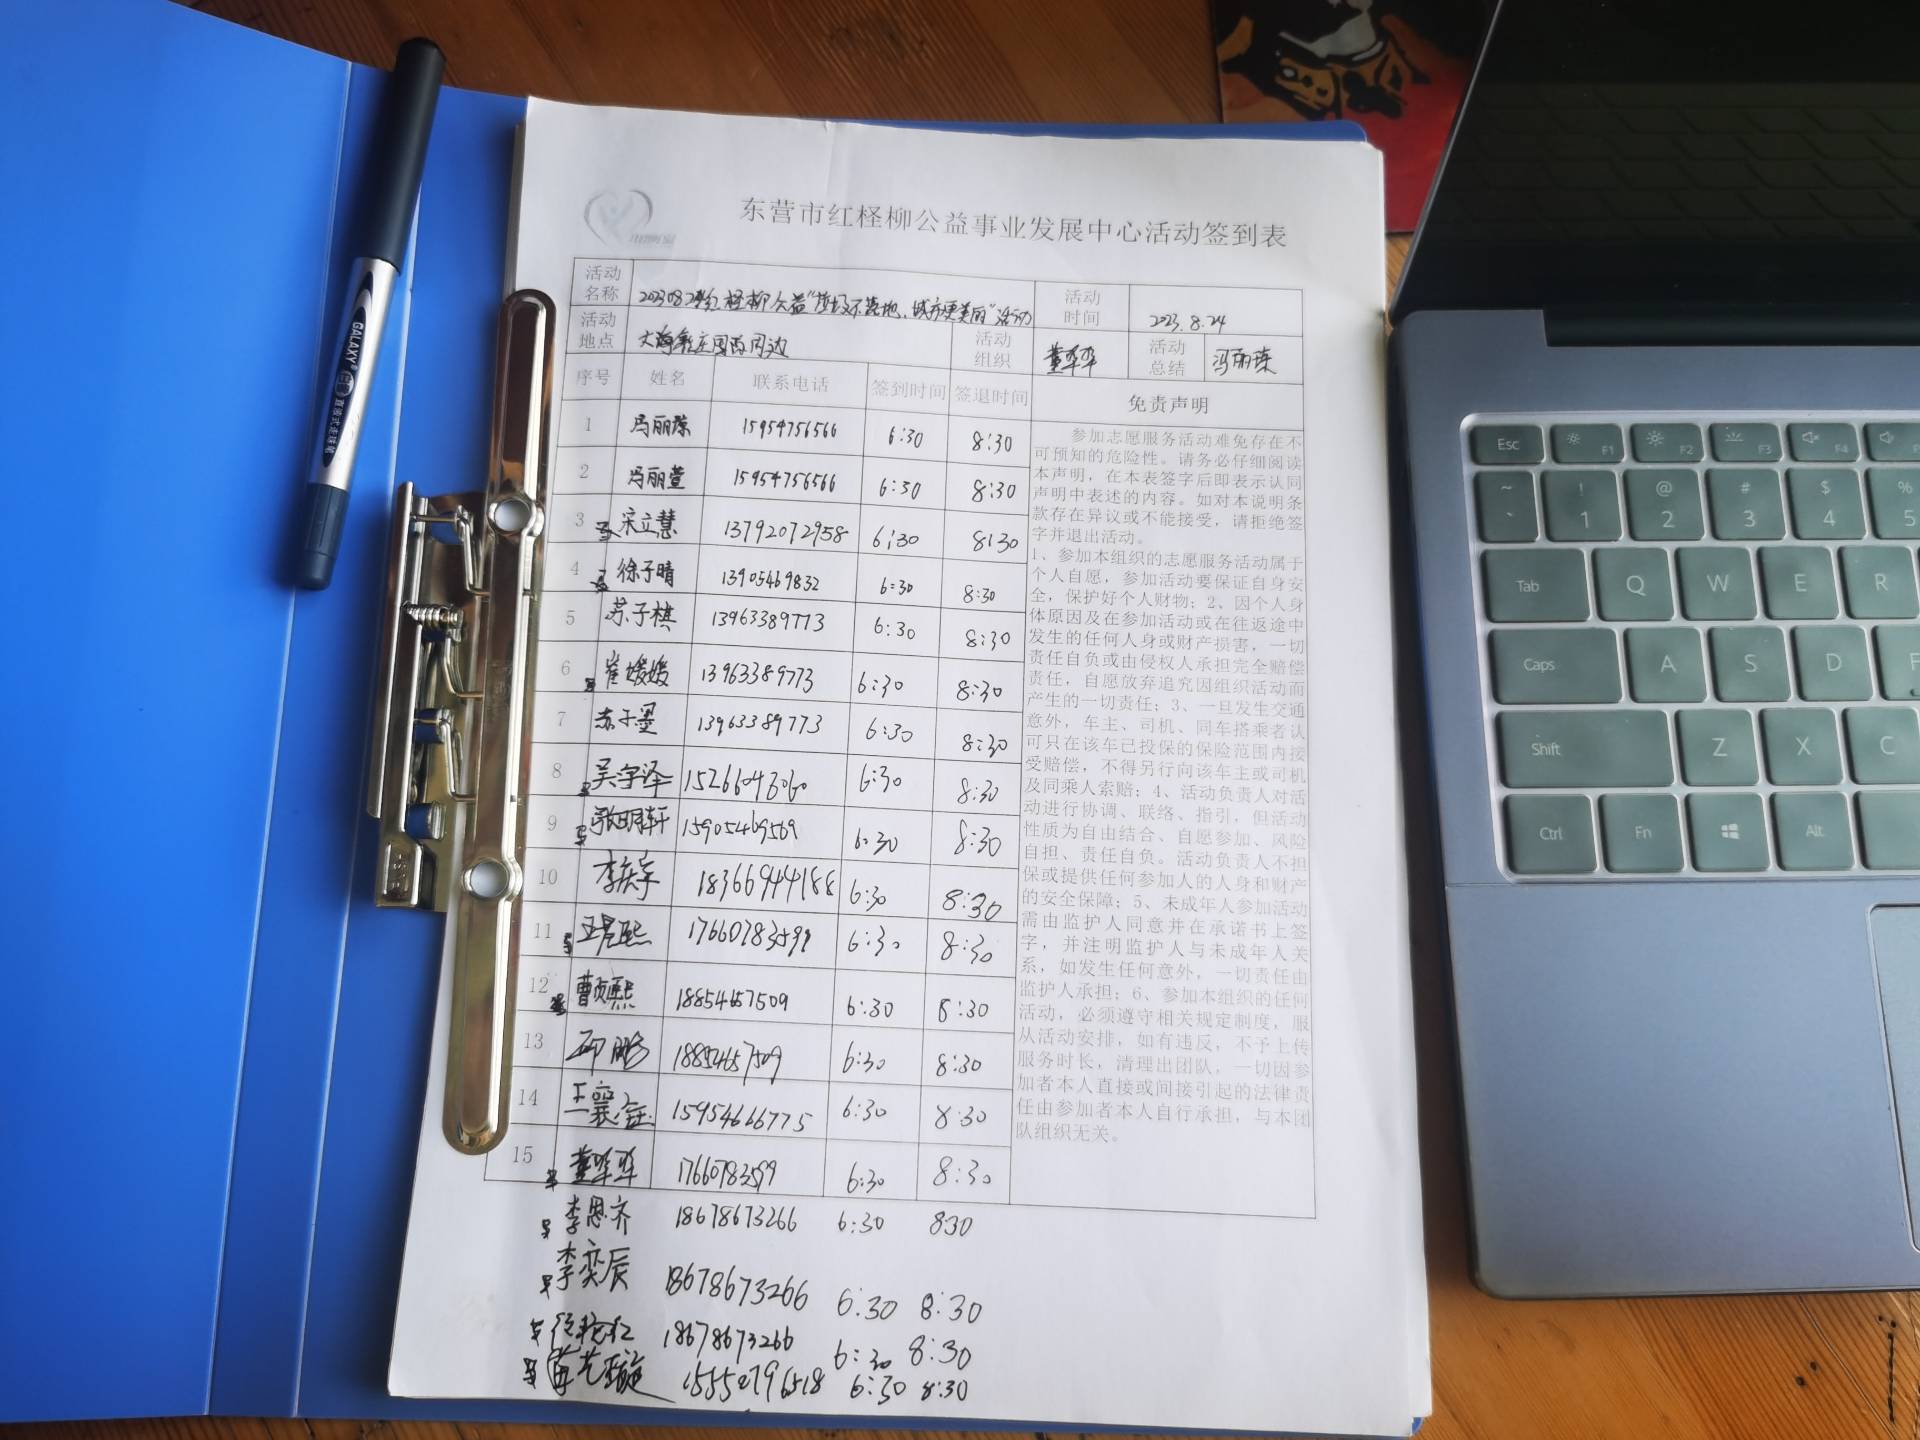 东营市红柽柳公益事业发展中心活动签到表
活动名称 20230824红柽柳公益"垃圾不落地、城市更美丽"活动 活动时间 2023.8.24
活动地点 周边 活动组织 董翠翠 活动总结 冯丽琼
序号 姓名 联系电话 签到时间 签退时间 免责声明
1 冯丽琼 15954756566 6:30 8:30
2 冯丽萱 15954756566 6:30 8:30
3 宋立慧 13792072958 6:30 8:30
4 徐子晴 13905469832 6:30 8:30
5 苏子棋 13963389773 6:30 8:30
6 崔媛媛 13963389773 6:30 8:30
7 苏子墨 13963389773 6:30 8:30
8 吴宇泽 6:30 8:30
9 张明轩 15905469569 6:30 8:30
10 李奕宇 18366944188 6:30 8:30
11 17660783599 6:30 8:30
12 曹贞熙 18854657509 6:30 8:30
13 邱鹏 18854657509 6:30 8:30
14 王 15954666775 6:30 8:30
15 董翠翠 17660783599 6:30 8:30
李恩齐 18678673266 6:30 830
李奕辰 18678673266 6:30 8:30
18678673266 6:30 8:30
艺璇 6:30 8:30
参加志愿服务活动难免存在不
可预知的危险性。请务必仔细阅读
本声明，在本表签字后即表示认同
声明中表述的内容。如对本说明条
款存在异议或不能接受，请拒绝签
字并退出活动。
1、参加本组织的志愿服务活动属于
个人自愿，参加活动要保证自身安
全，保护好个人财物；2、因个人身
体原因及在参加活动或在往返途中
发生的任何人身或财产损害，一切
责任自负或由侵权人承担完全赔偿
责任，自愿放弃追究因组织活动而
产生的一切责任；3、一旦发生交通
意外，车主、司机、同车搭乘者认
可只在该车已投保的保险范围内接
受赔偿，不得另行向该车主或司机
及同乘人索赔；4、活动负责人对活
动进行协调、联络、指引，但活动
性质为自由结合、自愿参加、风险
自担、责任自负。活动负责人不担
保或提供任何参加人的人身和财产
的安全保障；5、未成年人参加活动
需由监护人同意并在承诺书上签
字，并注明监护人与未成年人关
系，如发生任何意外，一切责任由
监护人承担；6、参加本组织的任何
活动，必须遵守相关规定制度，服
从活动安排，如有违反，不予上传
服务时长，清理出团队，一切因参
加者本人直接或间接引起的法律责
任由参加者本人自行承担，与本团
队组织无关。
GALAXY® 直液式走珠笔
Esc F1 F2 F3 F4
~ ` ! 1 @ 2 # 3 $ 4 % 5
Tab Q W E R
Caps A S D F
Shift Z X C
Ctrl Fn Alt